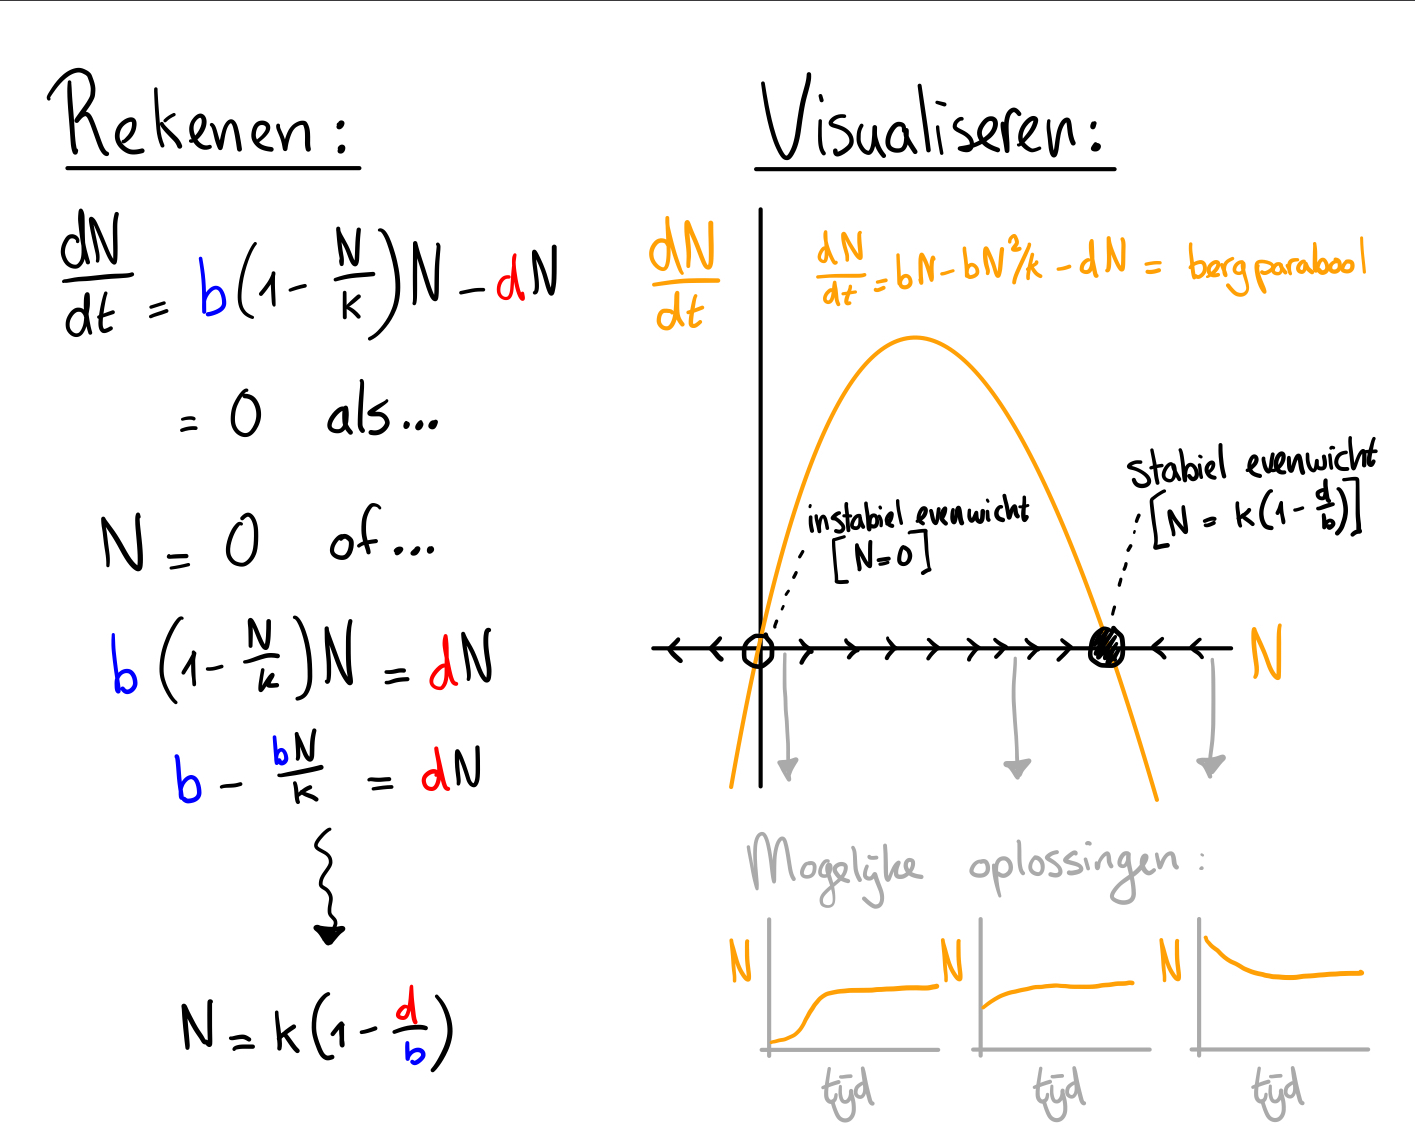 Rekenen:
dN/dt = b(1 - N/k)N - dN
= 0 als...
N = 0 of...
b(1 - N/k)N = dN
b - bN/k = dN
N = k(1 - d/b)
Visualiseren:
dN/dt
dN/dt = bN - bN²/k - dN = bergparabool
instabiel evenwicht
[N=0]
stabiel evenwicht
[N = k(1 - d/b)]
N
Mogelijke oplossingen:
N
tijd
N
tijd
N
tijd